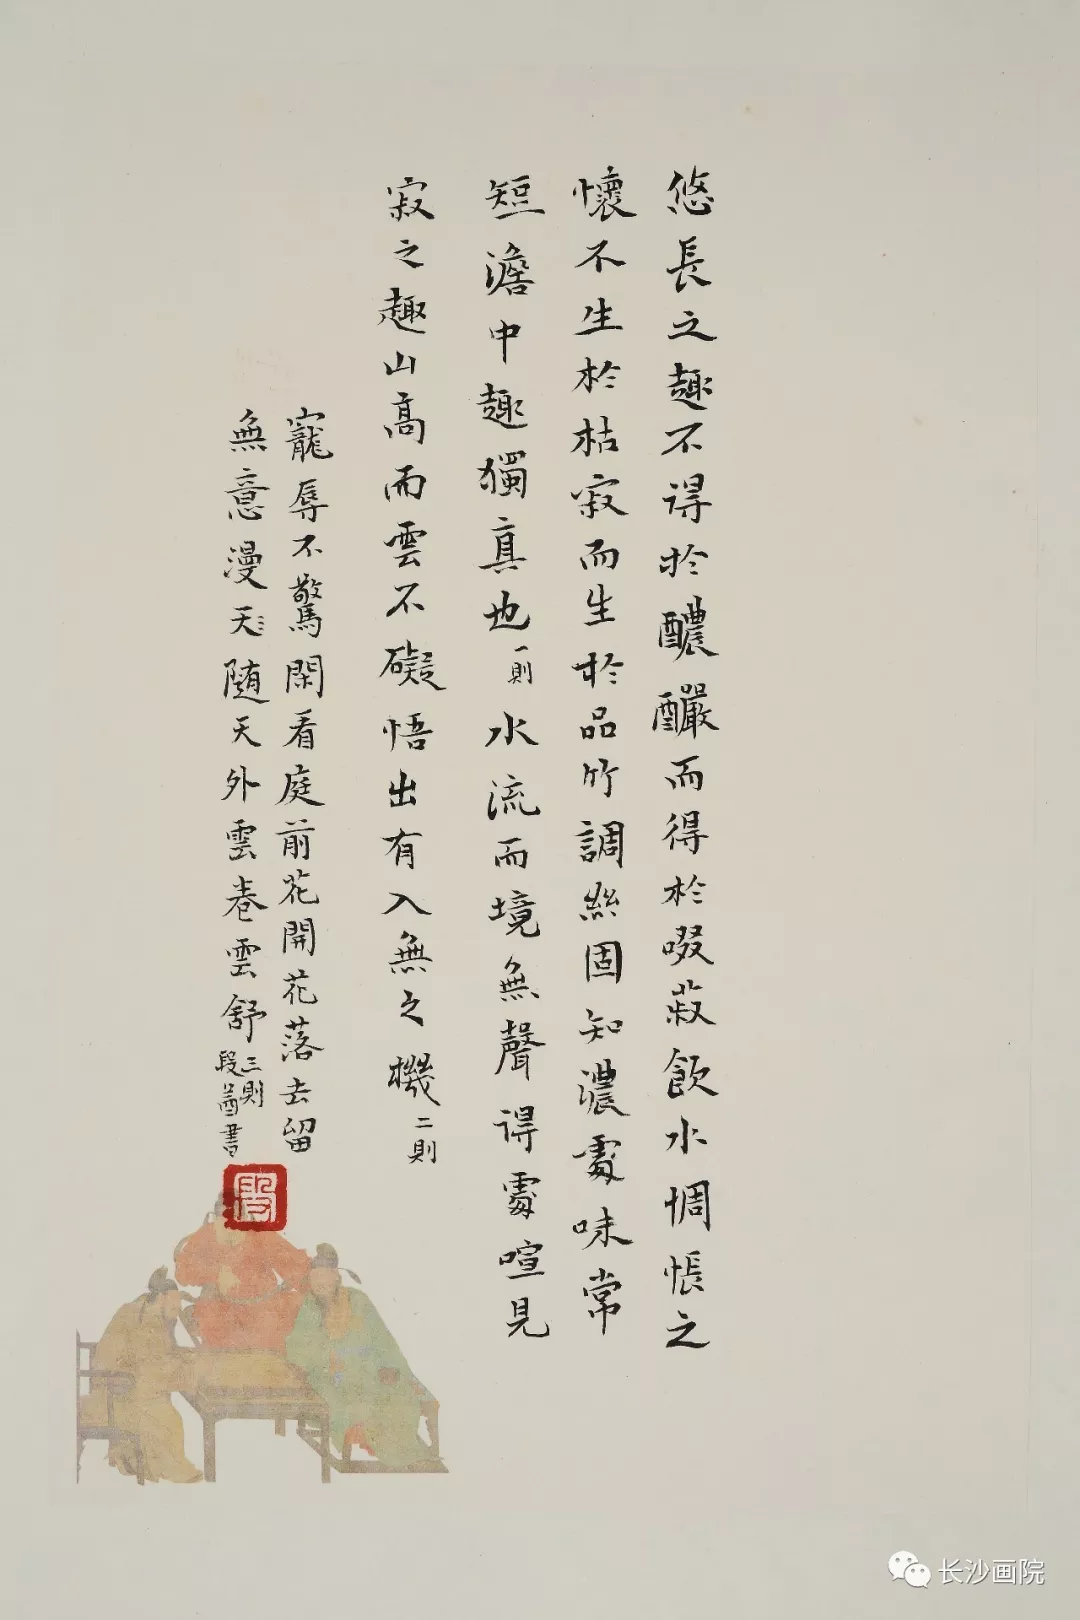 悠長之趣不得於醲釅而得於啜菽飲水惆悵之
懷不生於枯寂而生於品竹調絲固知濃處味常
短澹中趣獨真也一則水流而境無聲得處喧見
寂之趣山高而雲不礙悟出有入無之機二則
寵辱不驚閑看庭前花開花落去留
無意漫天随天外雲卷雲舒三則
段書
长沙画院